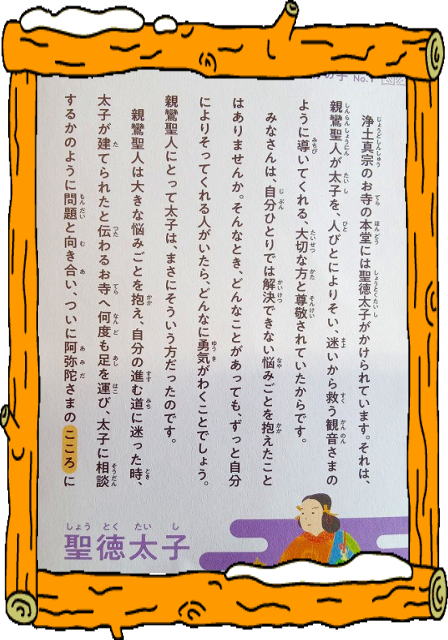 浄土真宗のお寺の本堂には聖徳太子がかけられています。それは、
親鸞聖人が太子を、人びとによりそい、迷いから救う観音さまの
ように導いてくれる、大切な方と尊敬されていたからです。
みなさんは、自分ひとりでは解決できない悩みごとを抱えたこと
はありませんか。そんなとき、どんなことがあっても、ずっと自分
によりそってくれる人がいたら、どんなに勇気がわくことでしょう。
親鸞聖人にとって太子は、まさにそういう方だったのです。
親鸞聖人は大きな悩みごとを抱え、自分の進む道に迷った時、
太子が建てられたと伝わるお寺へ何度も足を運び、太子に相談
するかのように問題と向き合い、ついに阿弥陀さまのこころに
しょう とく たい し
聖徳太子